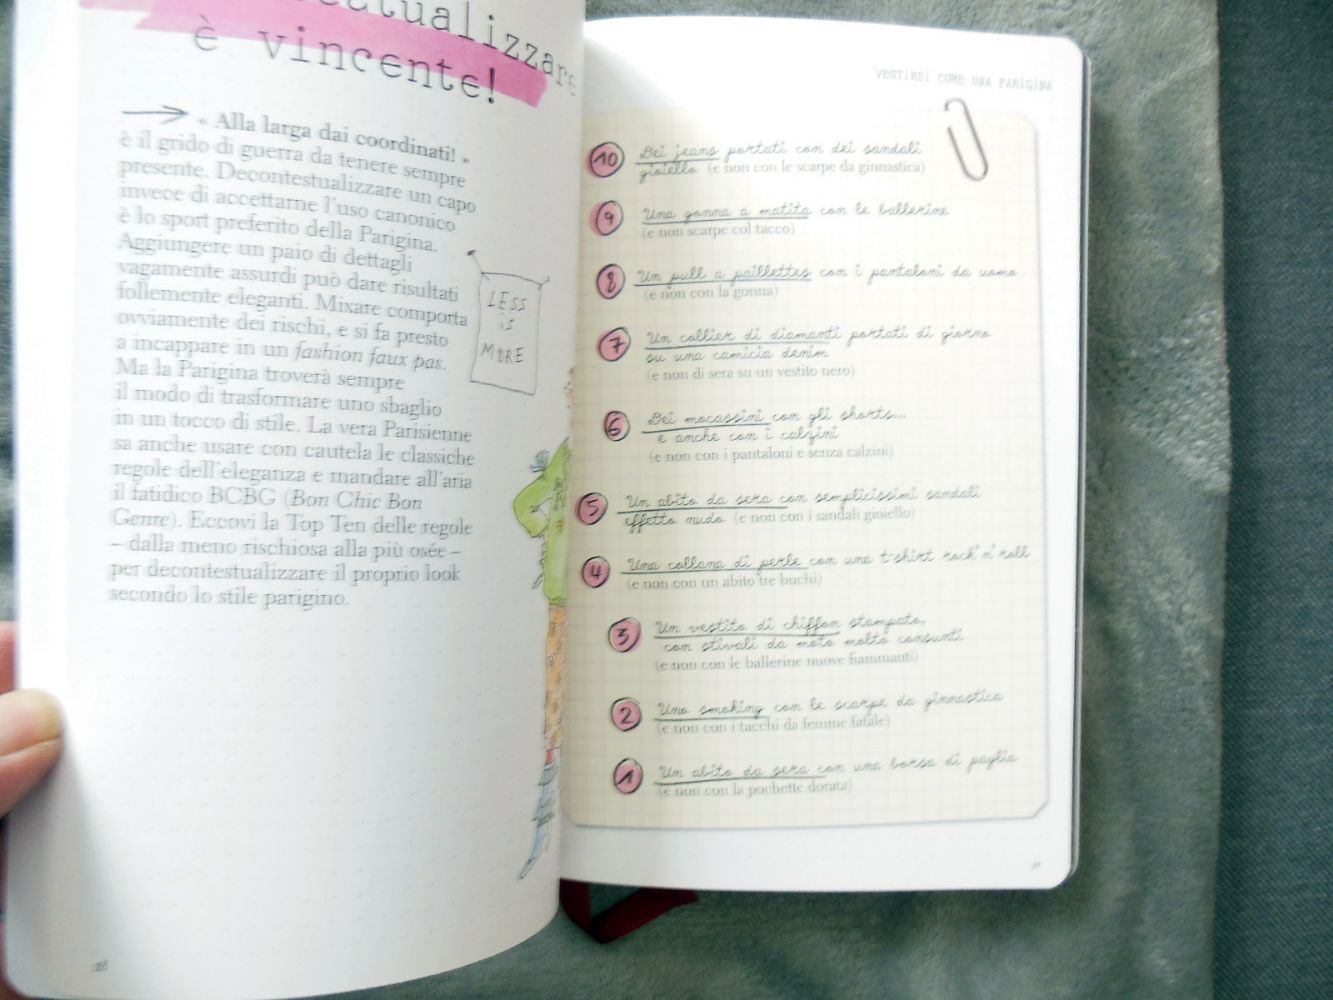 è vincente!
« Alla larga dai coordinati! »
è il grido di guerra da tenere sempre
presente. Decontestualizzare un capo
invece di accettarne l'uso canonico
è lo sport preferito della Parigina.
Aggiungere un paio di dettagli
vagamente assurdi può dare risultati
follemente eleganti. Mixare comporta
ovviamente dei rischi, e si fa presto
a incappare in un fashion faux pas.
Ma la Parigina troverà sempre
il modo di trasformare uno sbaglio
in un tocco di stile. La vera Parisienne
sa anche usare con cautela le classiche
regole dell'eleganza e mandare all'aria
il fatidico BCBG (Bon Chic Bon
Genre). Eccovi la Top Ten delle regole
– dalla meno rischiosa alla più osée –
per decontestualizzare il proprio look
secondo lo stile parigino.
LESS
is
MORE
VESTIRSI COME UNA PARIGINA
10 Dei jeans portati con dei sandali
gioiello (e non con le scarpe da ginnastica)
9 Una gonna a matita con le ballerine
(e non scarpe col tacco)
8 Un pull a paillettes con i pantaloni da uomo
(e non con la gonna)
7 Un collier di diamanti portati di giorno
su una camicia denim
(e non di sera su un vestito nero)
6 Dei mocassini con gli shorts...
e anche con i calzini
(e non con i pantaloni e senza calzini)
5 Un abito da sera con semplicissimi sandali
effetto nudo (e non con i sandali gioiello)
4 Una collana di perle con una t-shirt rock'n'roll
(e non con un abito tre buchi)
3 Un vestito di chiffon stampato,
con stivali da moto molto consunti
(e non con le ballerine nuove fiammanti)
2 Uno smoking con le scarpe da ginnastica
(e non con i tacchi da femme fatale)
1 Un abito da sera con una borsa di paglia
(e non con la pochette dorata)